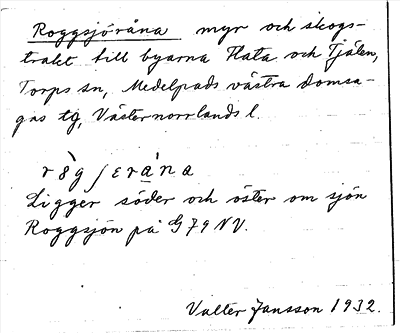 Roggsjöråna myr och skogs-
trakt till byarna Hata och Tjälen,
Torps sn, Medelpads västra domsa-
gas tg, Västernorrlands l.
Ligger söder och öster om sjön
Roggsjön på G 79 NV.
Valter Jansson 1932.